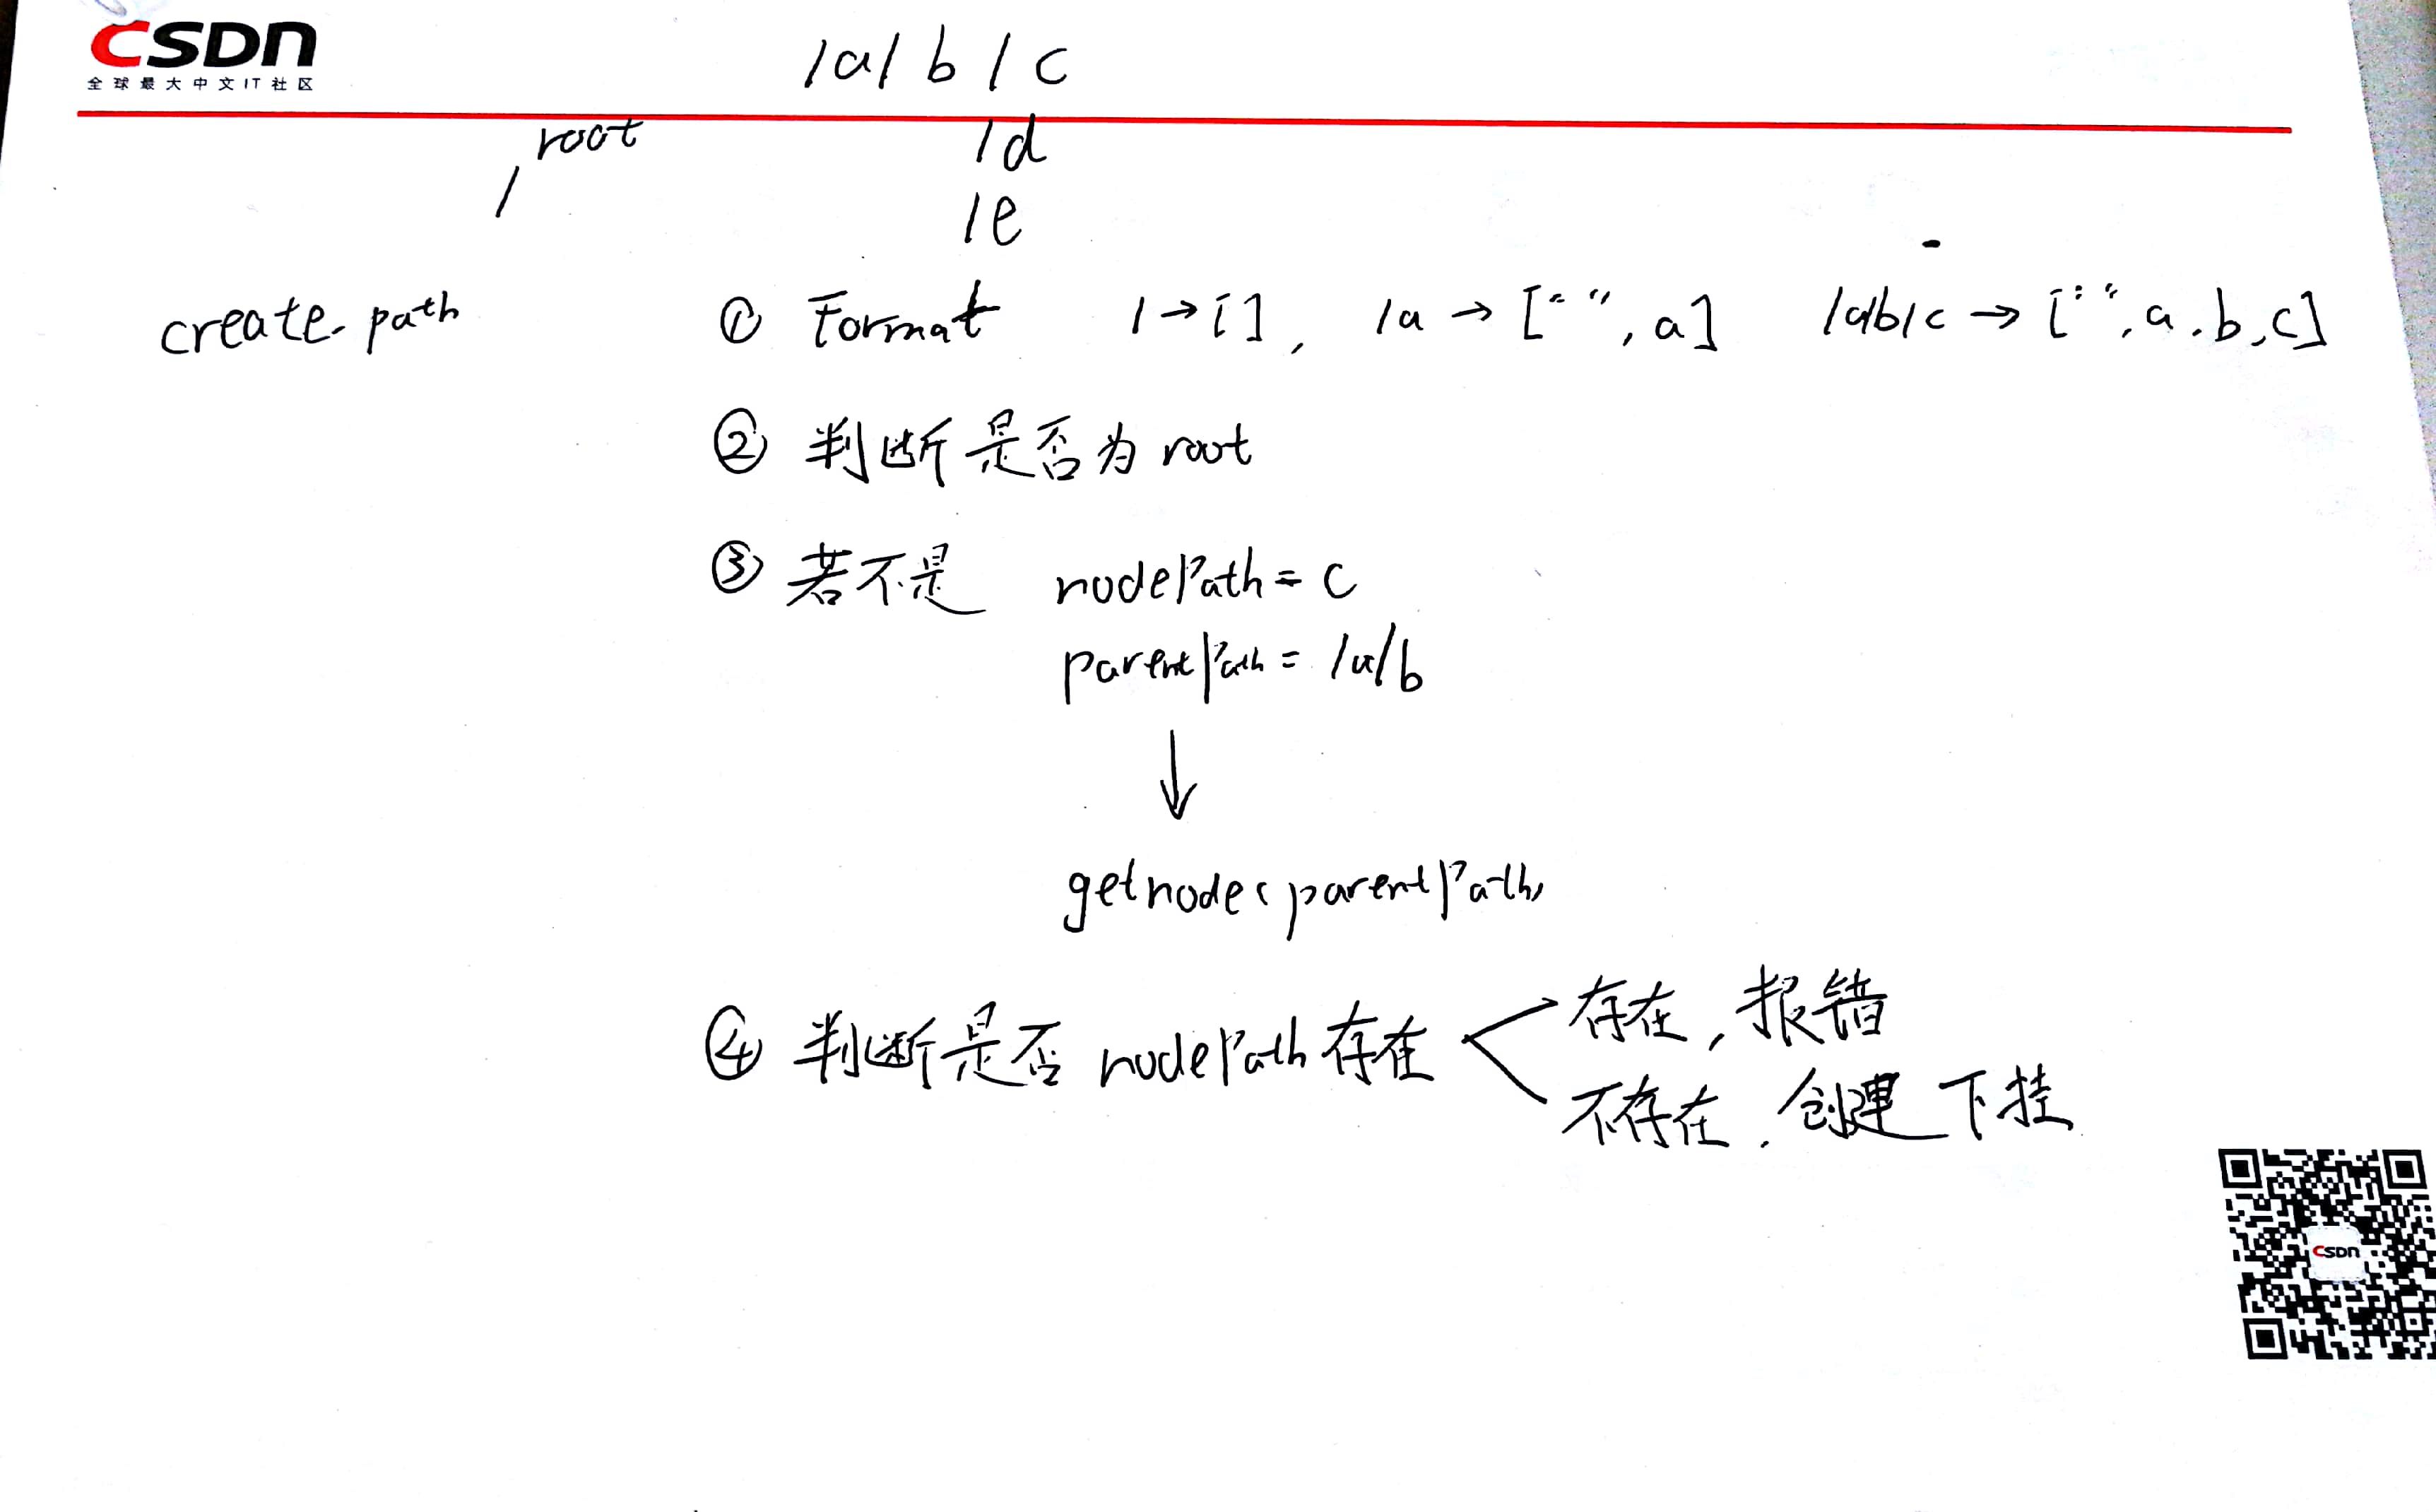 CSDN
全球最大中文IT社区
/a/b/c
root
/d
/
/e
create path
① Format /→[], /a→["", a] /a/b/c→["", a, b, c]
② 判断是否为 root
③ 若不是 nodePath = c
parentPath = /a/b
↓
getnode(parentPath)
④ 判断是否 nodePath 存在
存在, 报错
不存在, 创建 下挂
CSDN